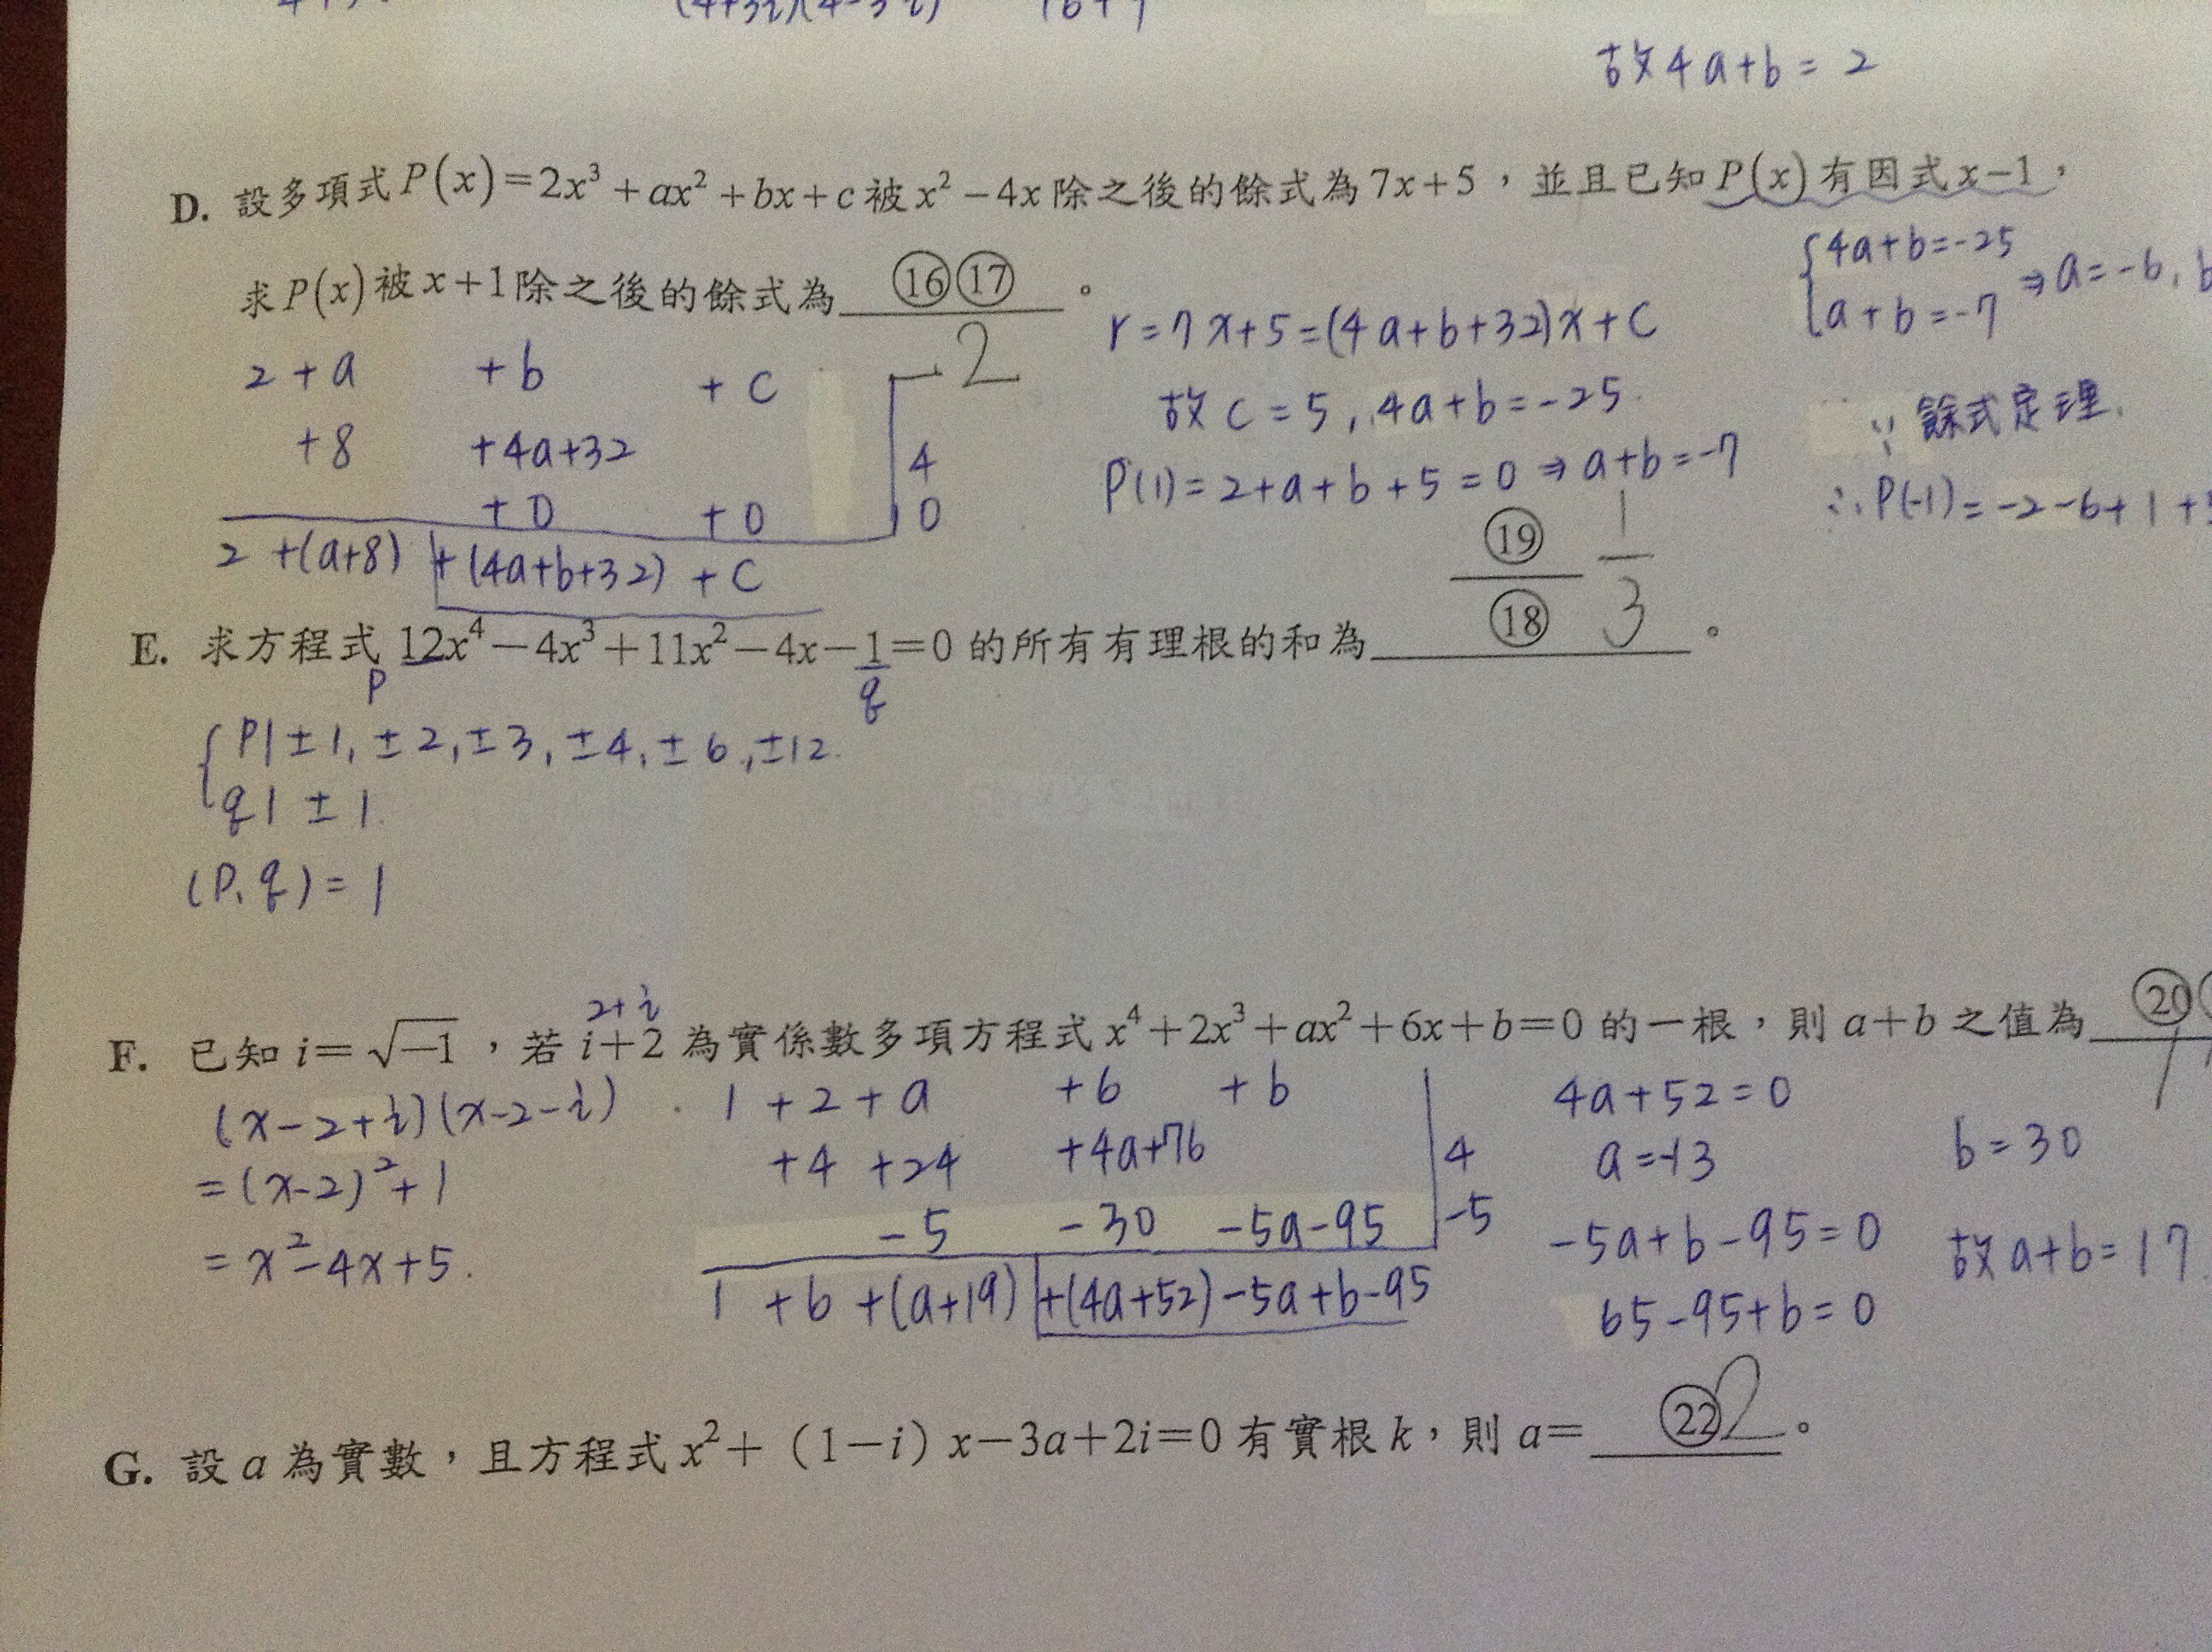 故 4a+b = 2
D. 設多項式 P(x)=2x³+ax²+bx+c 被 x²-4x 除之後的餘式為 7x+5，並且已知 P(x) 有因式 x-1，
求 P(x) 被 x+1 除之後的餘式為 ⑯⑰ 。
-2
2 +a +b +c
+8 +4a+32 4
+0 +0 0
2 +(a+8) +(4a+b+32) +c
r=7x+5=(4a+b+32)x+c
故 c=5, 4a+b=-25
P(1)=2+a+b+5=0 ⇒ a+b=-7
{4a+b=-25
a+b=-7 ⇒ a=-6, b
∵ 餘式定理
∴ P(-1)=-2-6+1+
E. 求方程式 12x⁴-4x³+11x²-4x-1=0 的所有有理根的和為 ⑲/⑱ 1/3 。
P q
{P| ±1, ±2, ±3, ±4, ±6, ±12.
q| ±1.
(P, q) = 1
2+i
F. 已知 i=√-1，若 i+2 為實係數多項方程式 x⁴+2x³+ax²+6x+b=0 的一根，則 a+b 之值為 ⑳
1
(x-2+i)(x-2-i)
=(x-2)²+1
=x²-4x+5.
1 +2 +a +6 +b
+4 +24 +4a+76 4
-5 -30 -5a-95 -5
1 +6 +(a+19) +(4a+52) -5a+b-95
4a+52=0
a=-13
-5a+b-95=0
65-95+b=0
b=30
故 a+b=17
G. 設 a 為實數，且方程式 x²+（1-i）x-3a+2i=0 有實根 k，則 a= ㉒ 2 。